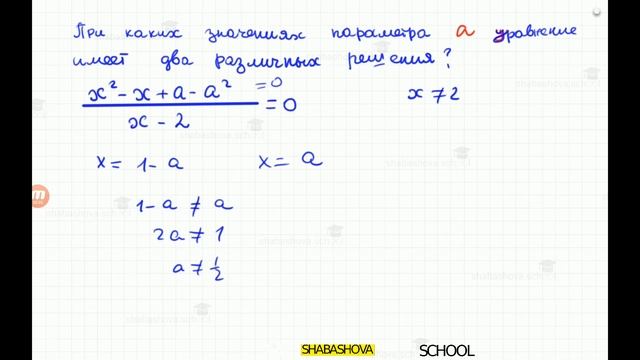 При каких значениях параметра a уравнение
имеет два различных решения?
x² - x + a - a² = 0
x - 2
= 0
x ≠ 2
x = 1 - a
x = a
1 - a ≠ a
2a ≠ 1
a ≠ 1/2
SHABASHOVA SCHOOL